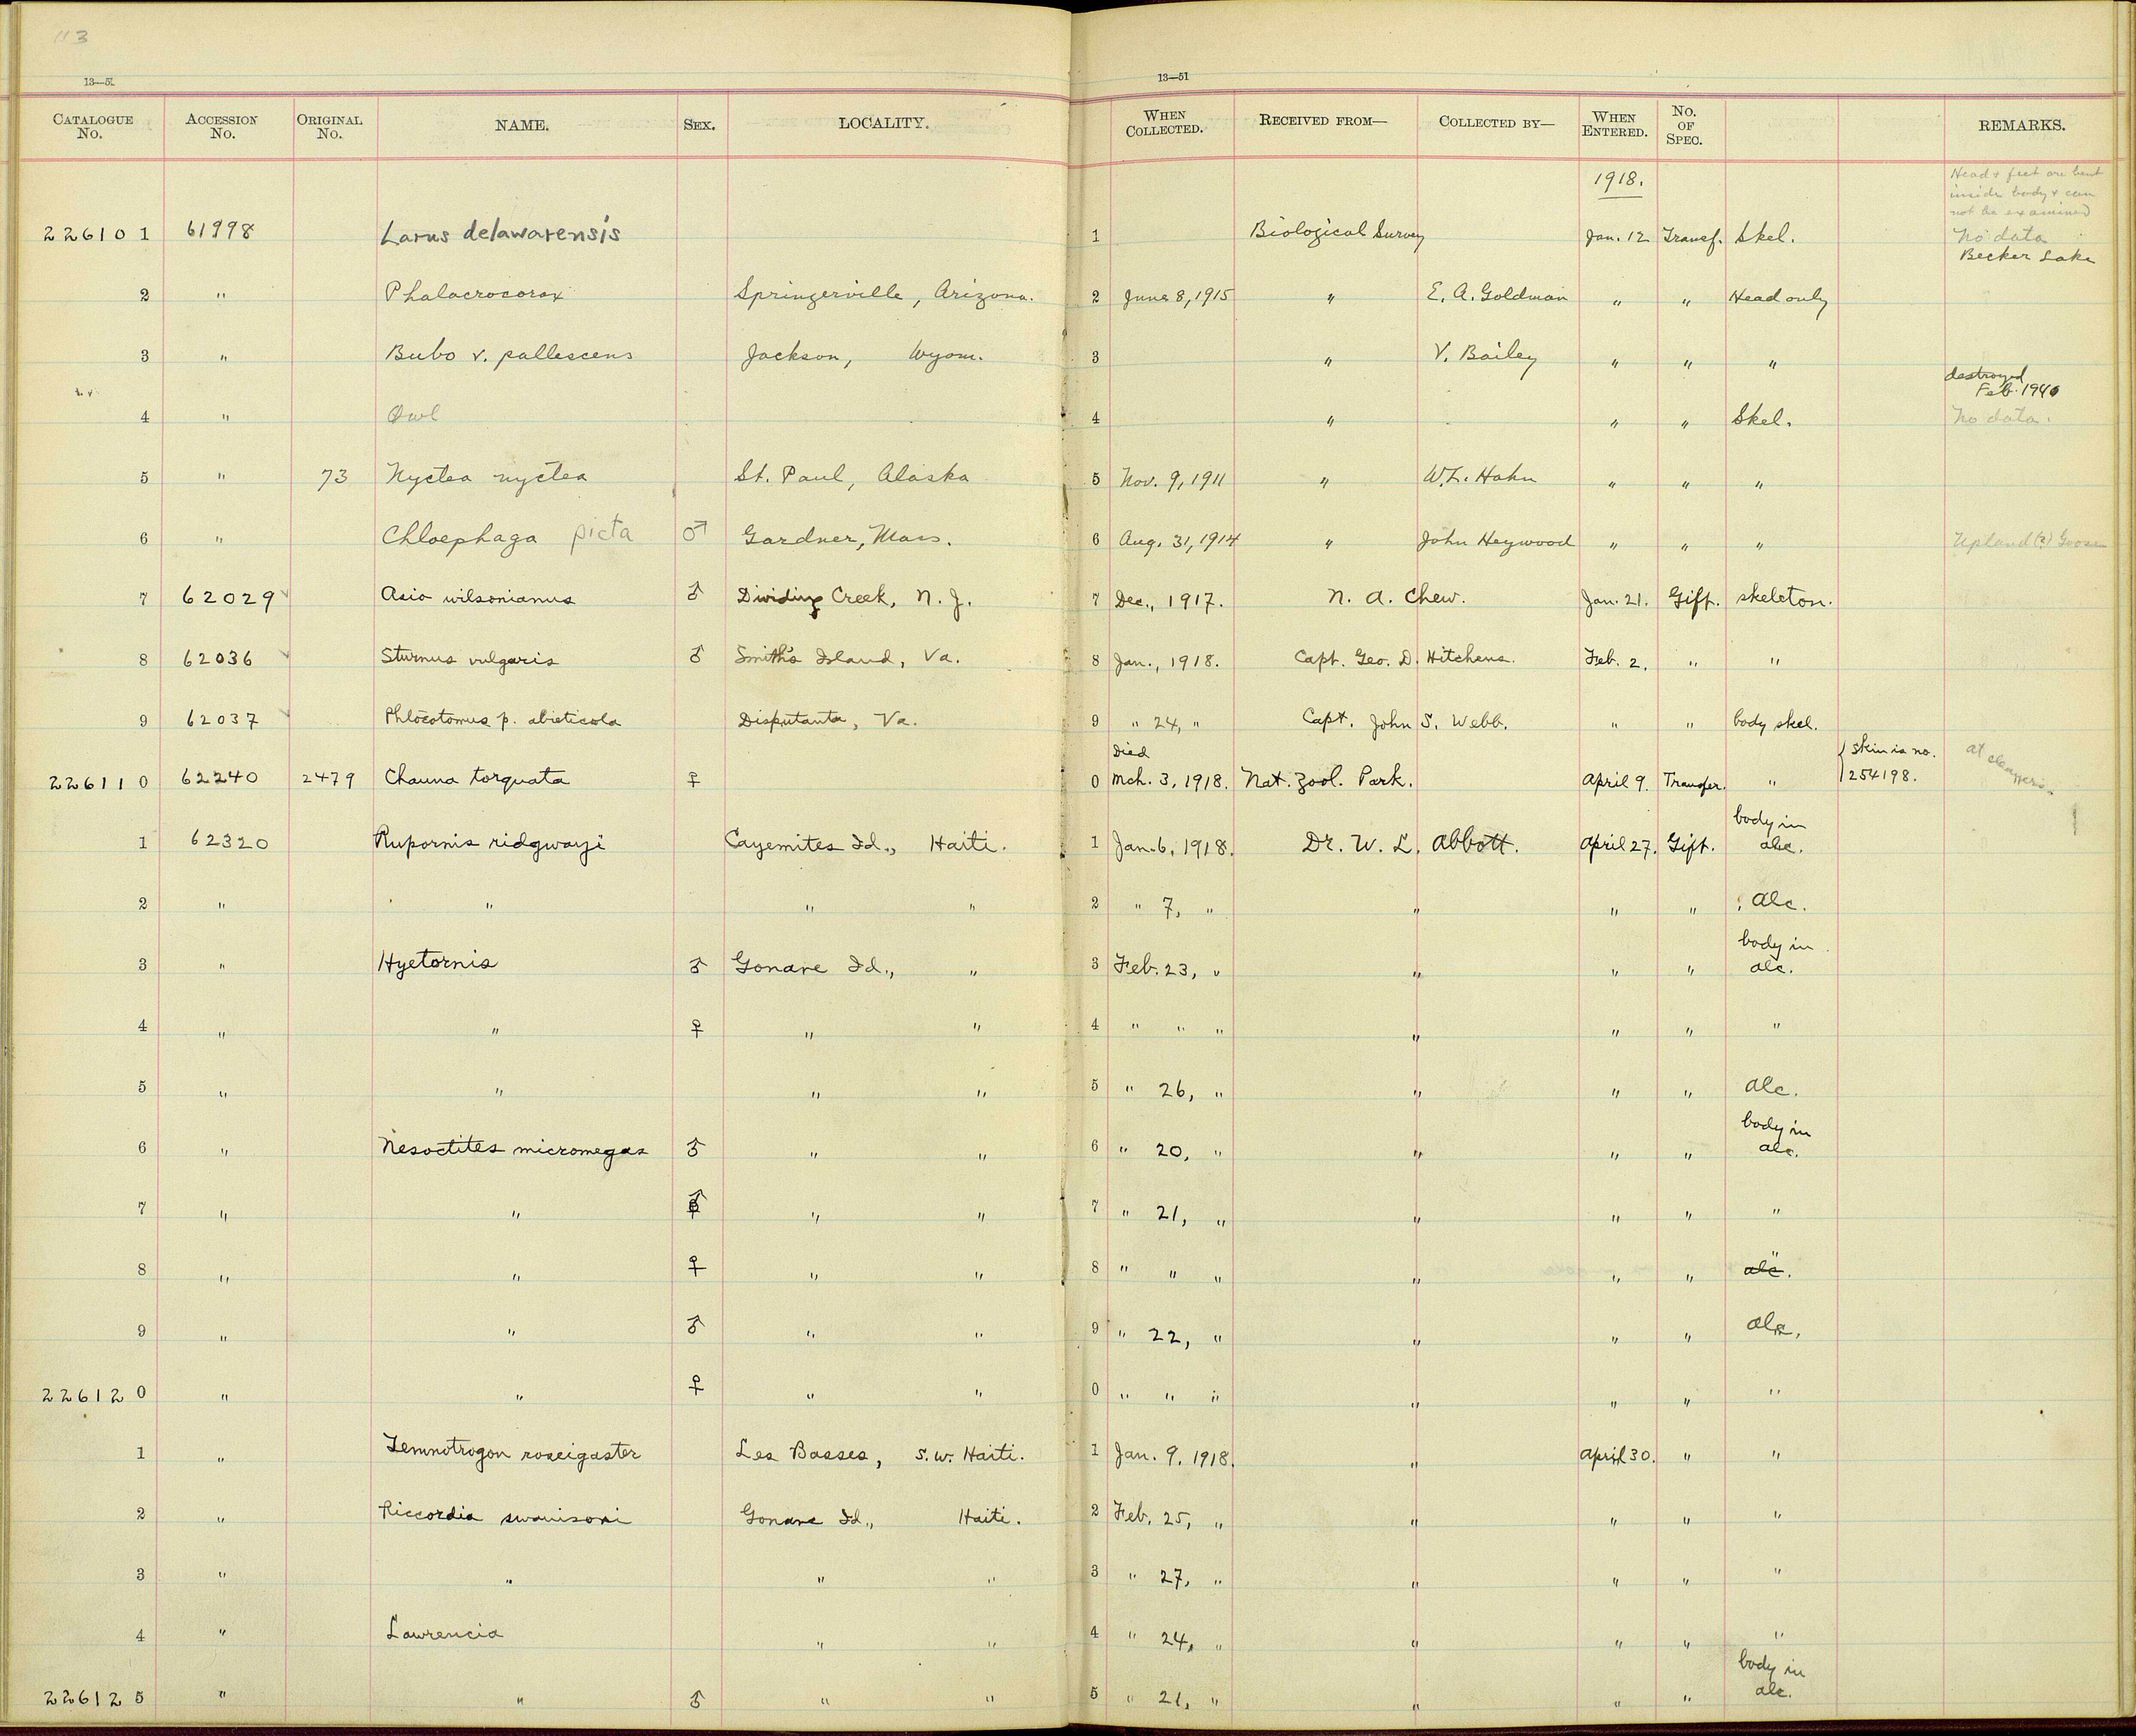 113
13—51
13—51
CATALOGUE No. ACCESSION No. ORIGINAL No. NAME. SEX. LOCALITY. WHEN COLLECTED. RECEIVED FROM— COLLECTED BY— WHEN ENTERED. No. OF SPEC. REMARKS.
1918. Head & feet are bent
inside body & can
not be examined
226101 61998 Larus delawarensis 1 Biological Survey Jan. 12 Transf. Skel. No data
Becker Lake
2 " Phalacrocorax Springerville, Arizona. 2 June 8, 1915 " E. A. Goldman " " Head only
3 " Bubo v. pallescens Jackson, Wyom. 3 " V. Bailey " " "
destroyed
Feb. 1940
4 " Owl 4 " " " Skel. No data.
5 " 73 Nyctea nyctea St. Paul, Alaska 5 Nov. 9, 1911 " W. L. Hahn " " "
6 " Chloephaga picta ♂ Gardner, Mass. 6 Aug. 31, 1914 " John Heywood " " " Upland (?) Goose
7 62029 Asio wilsonianus ♂ Dividing Creek, N. J. 7 Dec., 1917. N. A. Chew. Jan. 21. Gift. skeleton.
8 62036 Sturnus vulgaris ♂ Smith's Island, Va. 8 Jan., 1918. Capt. Geo. D. Hitchens. Feb. 2. " "
9 62037 Phlœotomus p. abieticola Disputanta, Va. 9 " 24, " Capt. John S. Webb. " " body skel.
Died { Skin is no.
226110 62240 2479 Chauna torquata ♀ 0 Mch. 3, 1918. Nat. Zool. Park. April 9. Transfer. " 254198. at cleaners.
body in
1 62320 Rupornis ridgwayi Cayemites Id., Haiti. 1 Jan. 6, 1918. Dr. W. L. Abbott. April 27. Gift. alc.
2 " " " " 2 " 7, " " " " Alc.
body in
3 " Hyetornis ♂ Gonave Id., " 3 Feb. 23, " " " " alc.
4 " " ♀ " " 4 " " " " " " "
5 " " " " 5 " 26, " " " " Alc.
body in
6 " Nesoctites micromegas ♂ " " 6 " 20, " " " " alc.
7 " " ♂ " " 7 " 21, " " " " "
8 " " ♀ " " 8 " " " " " " " alc.
9 " " ♂ " " 9 " 22, " " " " Alc.
226120 " " ♀ " " 0 " " " " " " "
1 " Temnotrogon roseigaster Les Basses, S.W. Haiti. 1 Jan. 9, 1918. " April 30. " "
2 " Riccordia swainsoni Gonave Id., Haiti. 2 Feb. 25, " " " " "
3 " " " " 3 " 27, " " " " "
4 " Lawrencia " " 4 " 24, " " " " "
body in
226125 " " ♂ " " 5 " 21, " " " " alc.